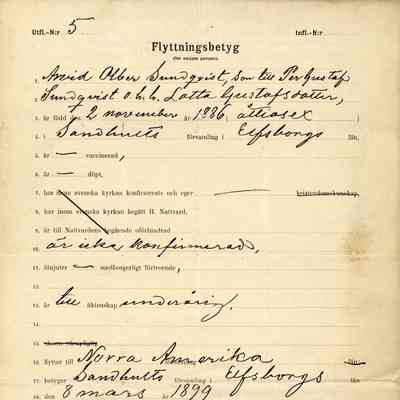 Utfl.-N:r 5 Infl.-N:r
Flyttningsbetyg
(för ensam person).
1. Arvid Olber Sundqvist, son till Per Gustaf
2. Sundqvist o.h.h. Lotta Gustafsdotter,
3. är född den 2 november år 1886 (åttiosex)
4. i Sandhults församling i Elfsborgs län,
5. är — vaccinerad,
6. är — döpt,
7. har inom svenska kyrkan konfirmerats och eger — kristendomskunskap,
8. har inom svenska kyrkan begått H. Nattvard,
9. är till Nattvardens begående oförhindrad
10. är icke konfirmerad,
11. åtnjuter — medborgerligt förtroende,
12.
13. är till äktenskap underårig.
14.
15.
16. flyttar till Norra Amerika län
17. betygar Sandhults församling i Elfsborgs län
18. den 8 mars år 1899